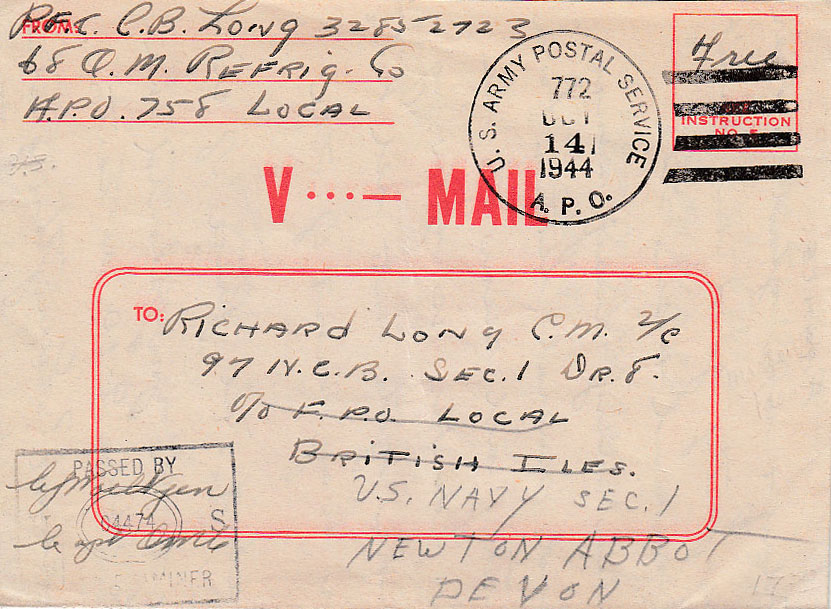 FROM:
PFC. C.B. LONG 32852723
68 Q.M. REFRIG. Co
A.P.O. 758 LOCAL
U. S. ARMY POSTAL SERVICE
772
OCT
14
1944
A. P. O.
Free
INSTRUCTION
NO.
V···— MAIL
TO: RICHARD LONG C.M. 2/c
97 N.C.B. SEC.1 DR.8.
c/o F.P.O. LOCAL
BRITISH ILES.
U.S. NAVY SEC. 1
NEWTON ABBOT
DEVON
PASSED BY
S
Capt